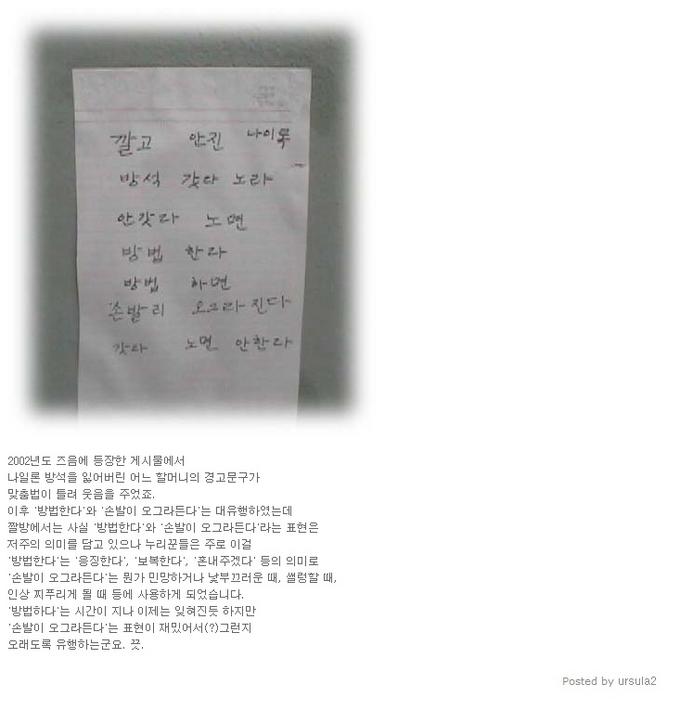 깔고 안진 나이롱
방석 갓다 노라
안갓다 노면
방법 한다
방법 하면
손발리 오그라진다
갓다 노면 안한다
2002년도 즈음에 등장한 게시물에서
나일론 방석을 잃어버린 어느 할머니의 경고문구가
맞춤법이 틀려 웃음을 주었죠.
이후 '방법한다'와 '손발이 오그라든다'는 대유행하였는데
짤방에서는 사실 '방법한다'와 '손발이 오그라든다'라는 표현은
저주의 의미를 담고 있으나 누리꾼들은 주로 이걸
'방법한다'는 '응징한다', '보복한다', '혼내주겠다' 등의 의미로
'손발이 오그라든다'는 뭔가 민망하거나 낯부끄러운 때, 썰렁할 때,
인상 찌푸리게 될 때 등에 사용하게 되었습니다.
'방법하다'는 시간이 지나 이제는 잊혀진듯 하지만
'손발이 오그라든다'는 표현이 재밌어서(?)그런지
오래도록 유행하는군요. 끗.
Posted by ursula2